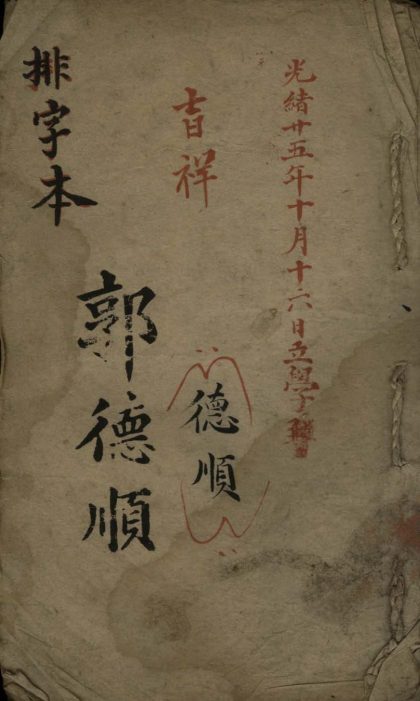 光緒廿五年十月十六日立學
吉祥
德順
郭德順
排字本